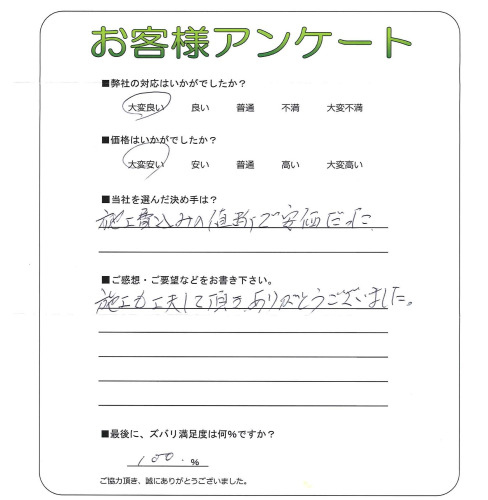 お客様アンケート
■弊社の対応はいかがでしたか？
大変良い 良い 普通 不満 大変不満
■価格はいかがでしたか？
大変安い 安い 普通 高い 大変高い
■当社を選んだ決め手は？
施工費込みの値断で安価だった.
■ご感想・ご要望などをお書き下さい。
施工も工夫して頂き、ありがとうございました。
■最後に、ズバリ満足度は何%ですか？
100. %
ご協力頂き、誠にありがとうございました。